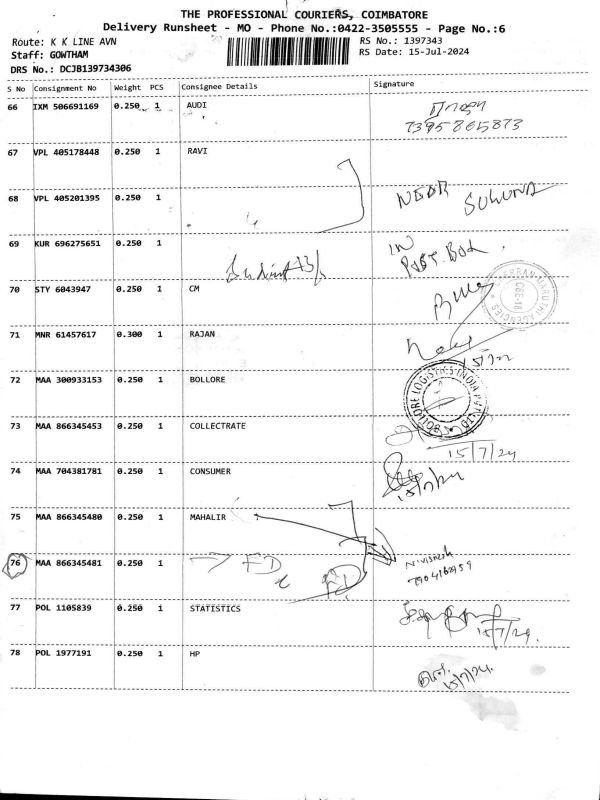 THE PROFESSIONAL COURIERS, COIMBATORE
Delivery Runsheet - MO - Phone No.:0422-3505555 - Page No.:6
Route: K K LINE AVN
RS No.: 1397343
Staff: GOWTHAM
RS Date: 15-Jul-2024
DRS No.: DCJB139734306
S No Consignment No Weight PCS Consignee Details Signature
66 IXM 506691169 0.250 1 AUDI
7395865873
67 VPL 405178448 0.250 1 RAVI
68 VPL 405201395 0.250 1
69 KUR 696275651 0.250 1 IN
70 STY 6043947 0.250 1 CM
71 MNR 61457617 0.300 1 RAJAN
72 MAA 300933153 0.250 1 BOLLORE
BOLLORE LOGISTICS INDIA PVT LTD
73 MAA 866345453 0.250 1 COLLECTRATE
15/7/24
74 MAA 704381781 0.250 1 CONSUMER
15/7/24
75 MAA 866345480 0.250 1 MAHALIR
76 MAA 866345481 0.250 1 FD
77 POL 1105839 0.250 1 STATISTICS
15/7/24.
78 POL 1977191 0.250 1 HP
15/7/24.